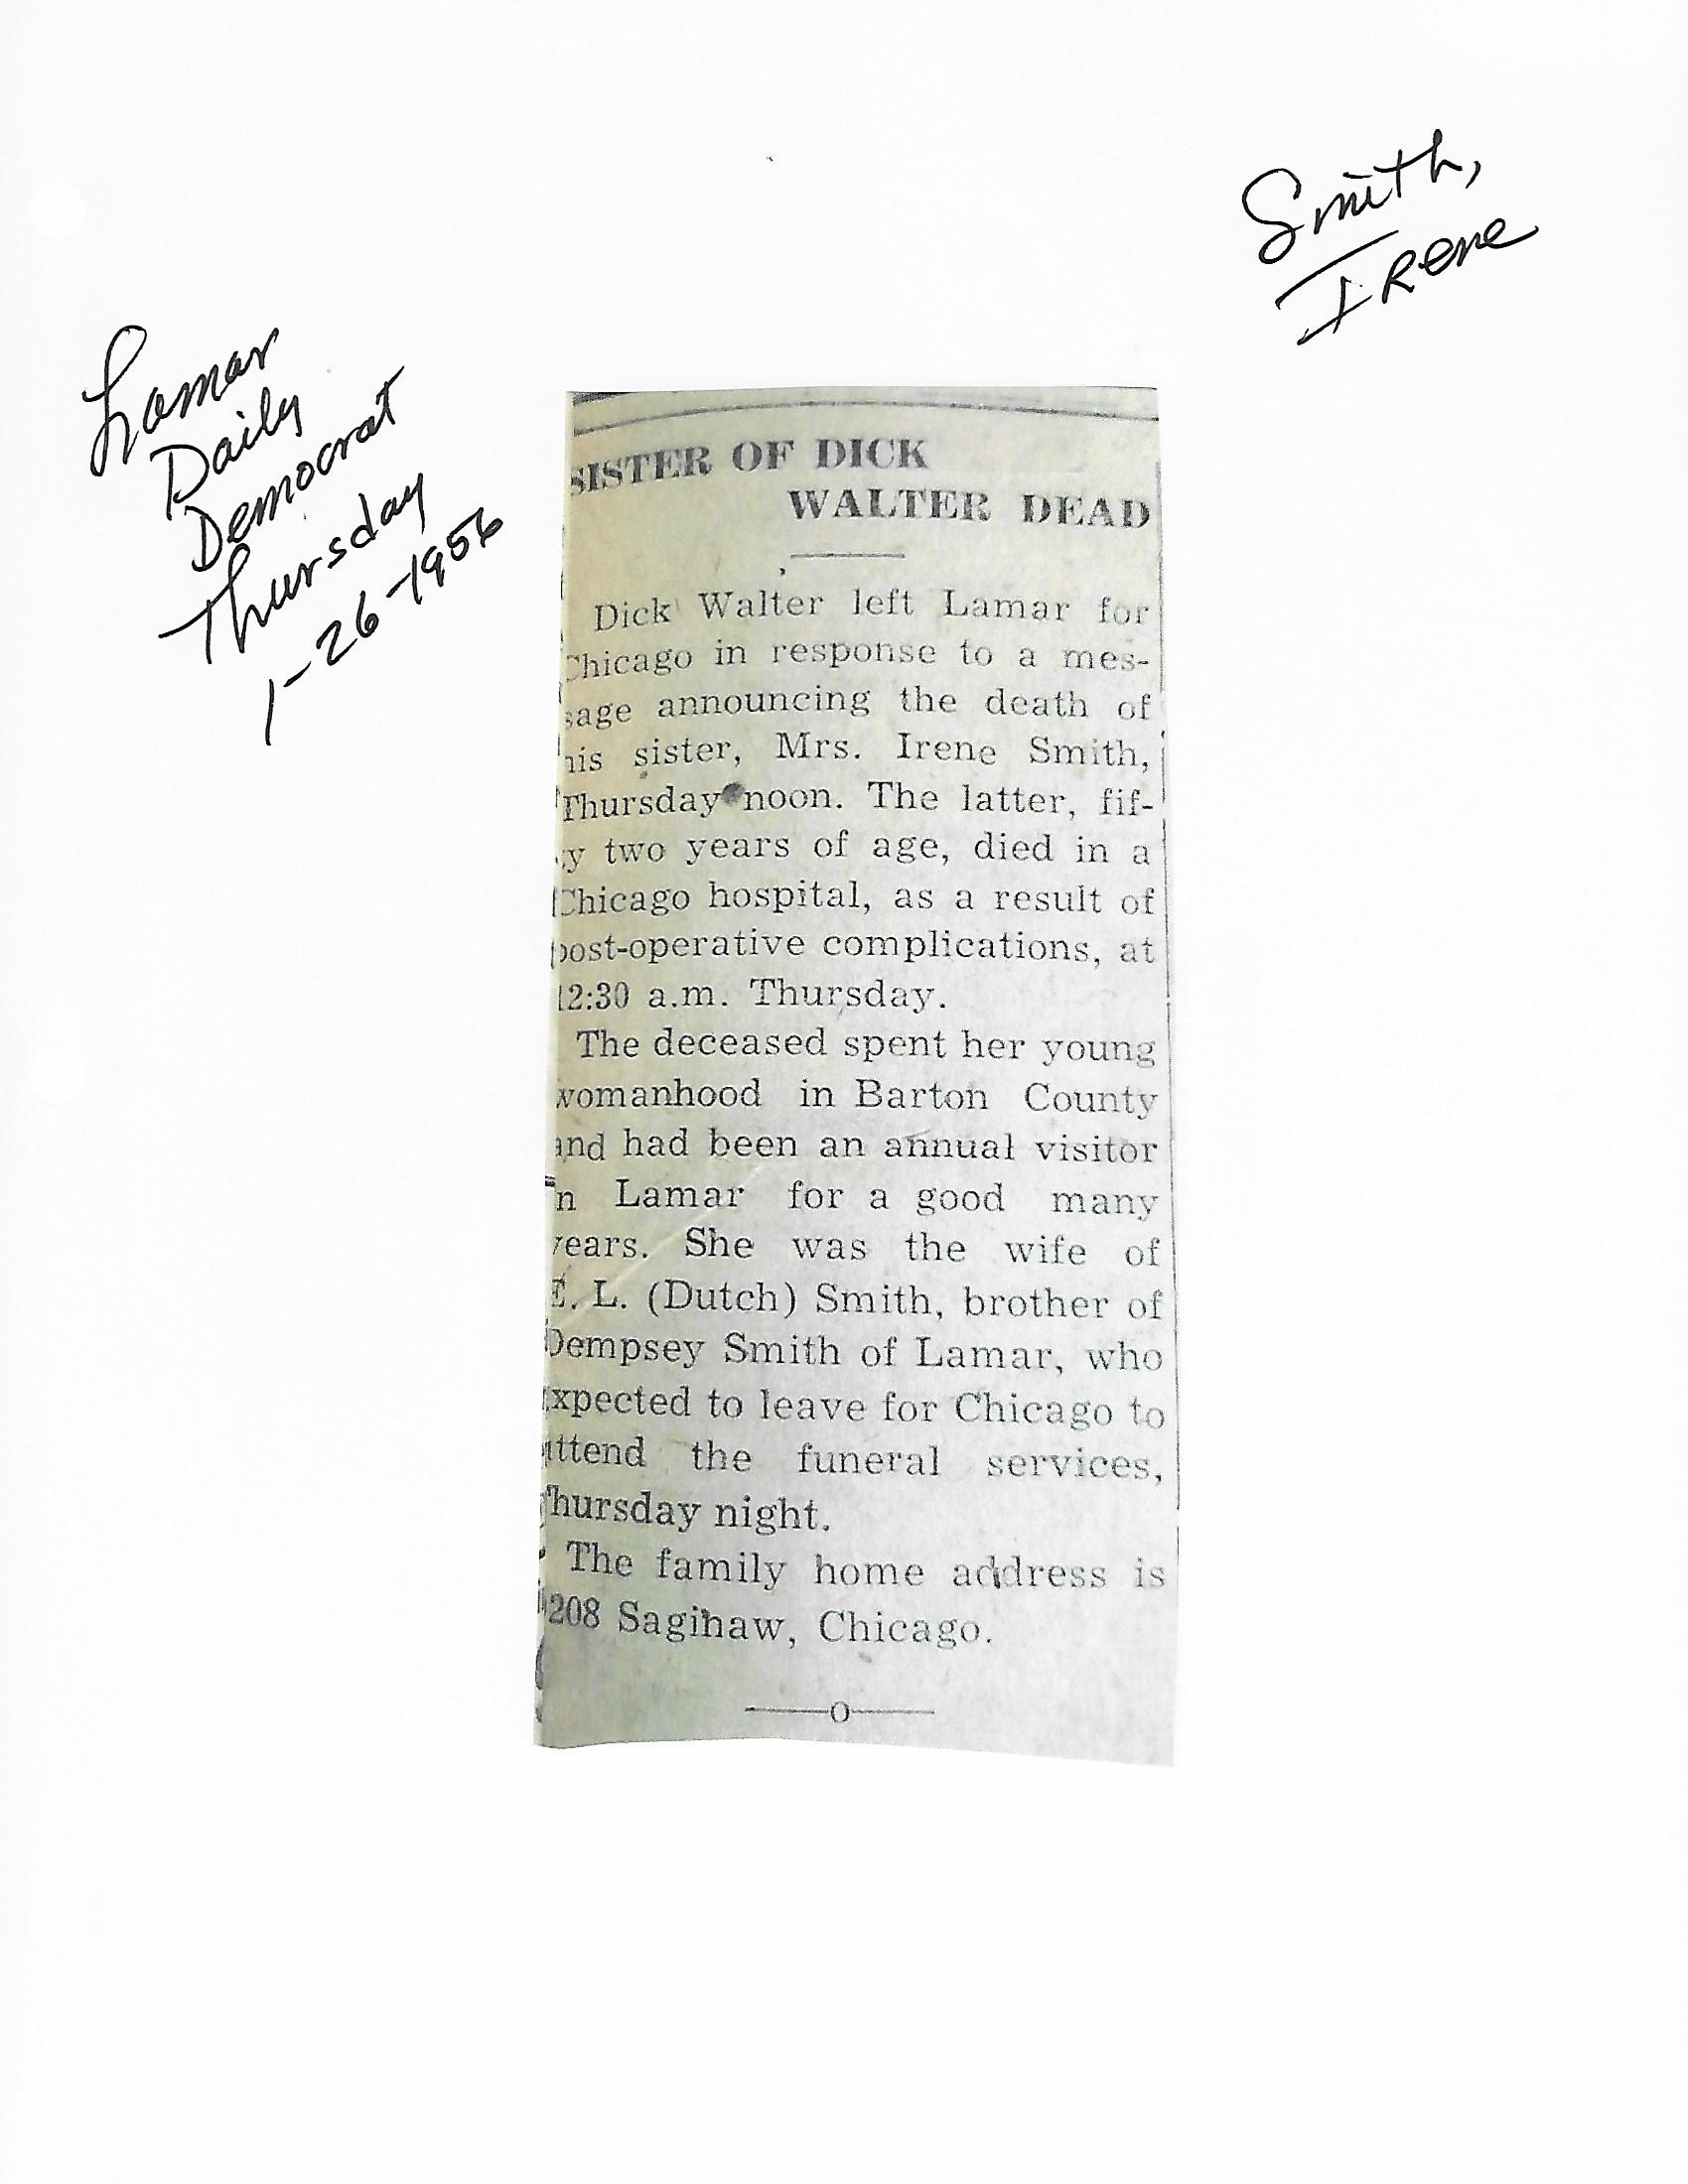 Smith,
Irene
Lamar
Daily
Democrat
Thursday
1-26-1956
SISTER OF DICK
WALTER DEAD
Dick Walter left Lamar for
Chicago in response to a mes-
sage announcing the death of
his sister, Mrs. Irene Smith,
Thursday noon. The latter, fif-
y two years of age, died in a
Chicago hospital, as a result of
post-operative complications, at
12:30 a.m. Thursday.
The deceased spent her young
womanhood in Barton County
and had been an annual visitor
n Lamar for a good many
years. She was the wife of
E. L. (Dutch) Smith, brother of
Dempsey Smith of Lamar, who
xpected to leave for Chicago to
attend the funeral services,
Thursday night.
The family home address is
208 Sagihaw, Chicago.